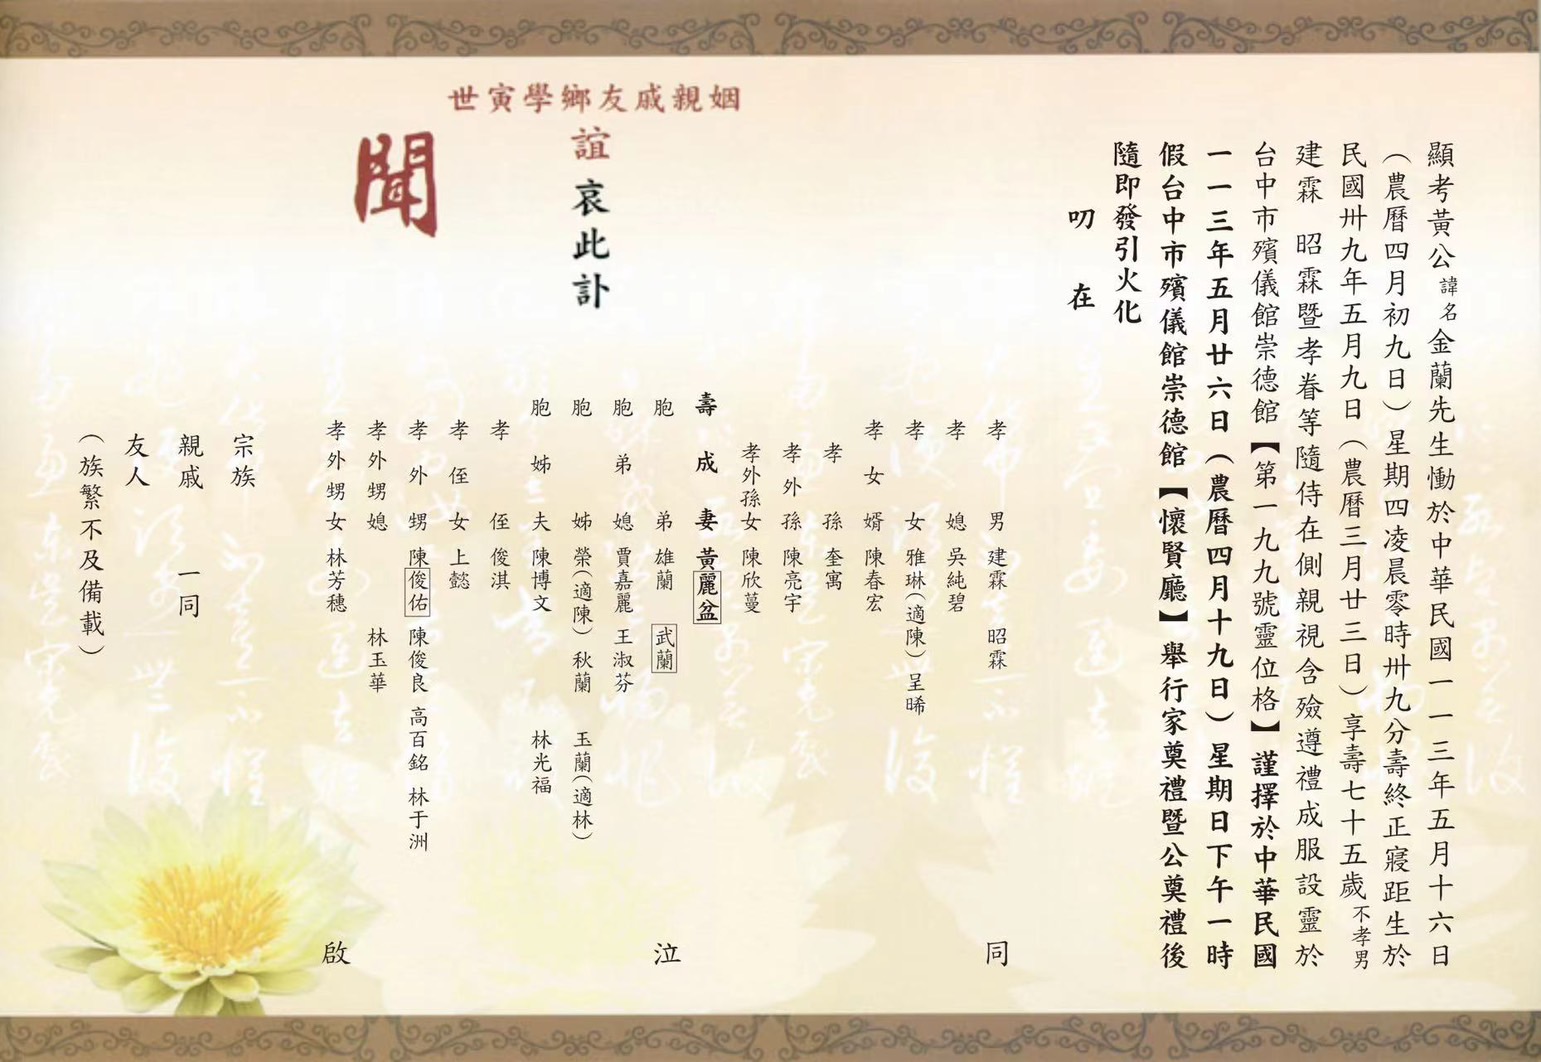 顯考黃公諱名金蘭先生慟於中華民國一一三年五月十六日
（農曆四月初九日）星期四凌晨零時卅九分壽終正寢距生於
民國卅九年五月九日（農曆三月廿三日）享壽七十五歲不孝男
建霖　昭霖暨孝眷等隨侍在側親視含殮遵禮成服設靈於
台中市殯儀館崇德館【第一九九號靈位格】謹擇於中華民國
一一三年五月廿六日（農曆四月十九日）星期日下午一時
假台中市殯儀館崇德館【懷賢廳】舉行家奠禮暨公奠禮後
隨即發引火化
叨在
姻親戚友鄉學寅世
誼哀此訃
聞
孝男　建霖　昭霖
孝媳　吳純碧
孝女　雅琳（適陳）呈晞
孝女婿　陳春宏
孝孫　奎寓
孝外孫　陳亮宇
孝外孫女　陳欣蔓
壽成妻　黃麗盆
胞弟　雄蘭　武蘭
胞弟媳　賈嘉麗　王淑芬
胞姊　榮（適陳）秋蘭　玉蘭（適林）
胞姊夫　陳博文　林光福
孝侄　俊淇
孝侄女　上懿
孝外甥　陳俊佑　陳俊良　高百銘　林于洲
孝外甥媳　林玉華
孝外甥女　林芳穗
同泣啟
宗族
親戚　一同
友人
（族繁不及備載）